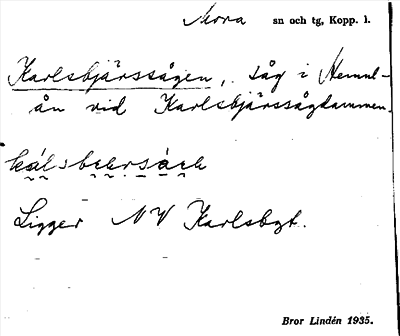 Mora sn och tg, Kopp. l.
Karlsbjärssågen, såg i Hemul-
ån vid Karlsbjärssågdammen.
Ligger NV Karlsbgt.
Bror Lindén 1935.